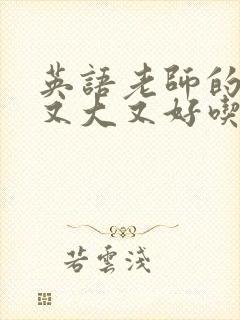 英語老師的
又大又好喫
若雲淺